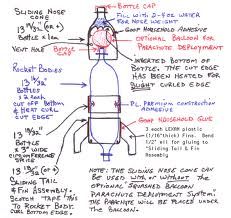 SLIDING NOSE
CONE
13 13/32" (OR ±)
BOTTLE X 1 EA
VENT HOLE
BOTTLE
CAP
BOTTLE CAP
FILL WITH 2-FOZ WATER
FOR NOSE WEIGHT
GOOP HOUSEHOLD ADHESIVE
OPTIONAL BALLOON FOR
PARACHUTE DEPLOYMENT
INVERTED BOTTOM OF
BOTTLE. THE CUT EDGE
HAS BEEN HEATED FOR
SLIGHT CURLED EDGE
ROCKET BODIES
13 13/32"
(OR ±)
BOTTLES
X 2 EACH
CUT OFF BOTTOM
& HEAT CURL
CUT EDGE
PL. PREMIUM CONSTRUCTION
ADHESIVE
GOOP HOUSEHOLD GLUE
13 13/32"
(OR ±)
BOTTLE
X 5" WIDE
CIRCUMFERENCE
SPLICE
3 each LEXAN plastic
(1/16"thick) Fins. Bend
1/2" all to glue to
"Sliding Tail & Fin
Assembly
SLIDING TAIL
& FIN ASSEMBLY.
SCOTCH TAPE THIS
TO ROCKET BODY
CURL BOTTOM EDGE.
NOTE: THE SLIDING NOSE CONE CAN
BE USED WITH OR WITHOUT THE
OPTIONAL SQUASHED BALLOON
PARACHUTE DEPLOYMENT SYSTEM.
THE PARACHUTE WILL BE PLACED UNDER
THE BALLOON.